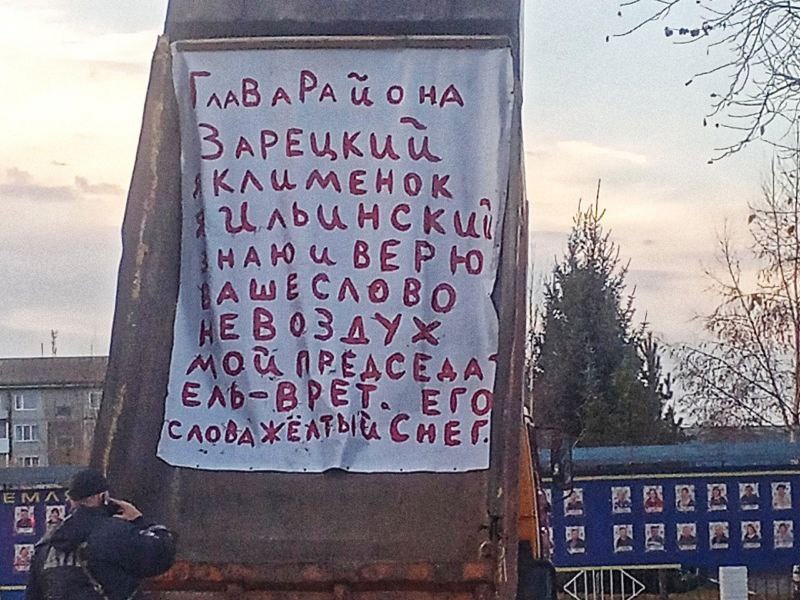 ГлаВа Района
ЗАРЕЦКИЙ
Я КЛИМЕНОК
Я ИЛЬИНСКИЙ
ЗНАЮ И ВЕРЮ
ВАШЕ СЛОВО
НЕ ВОЗДУХ
МОЙ ПРЕДСЕДАТ
ЕЛЬ-ВРЕТ. ЕГО
СЛОВА ЖЁЛТЫЙ СНЕГ.
ЕМЛЯ